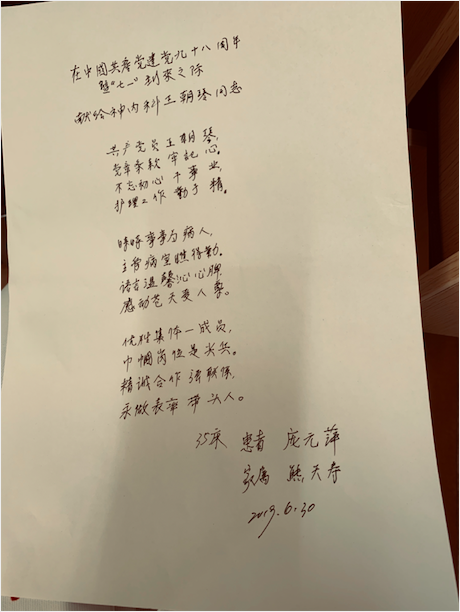 在中國共產党建党九十八周年
暨“七一”到來之际
献给神内科王朝琴同志
共产党员王朝琴,
党章条款牢記心。
不忘初心干事业,
护理工作勤于精。
時時事事为病人,
主管病室瞧得勤。
语言温馨沁心脾,
感动苍天爱人羣。
优秀集体一成员,
巾帼岗位是尖兵。
精诚合作强联保,
永做表率带头人。
35床 患者 庞元萍
家属 熊天寿
2019.6.30